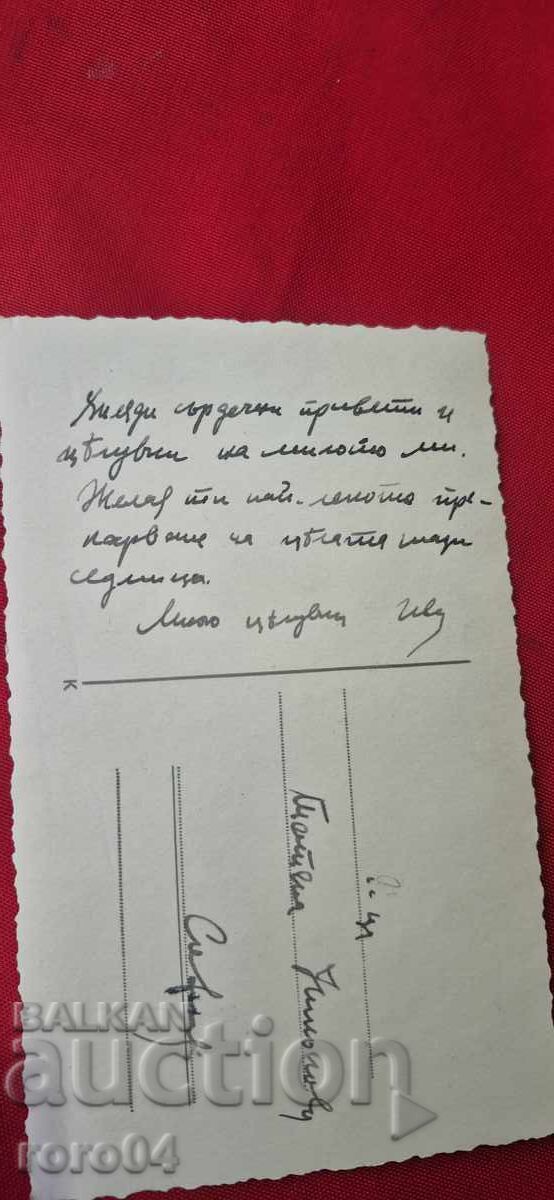 Хиляди сърдечни привети и
цѣлувки на милото ми.
Желая ти най-лекото пре-
карване на цѣлата тази
седмица.
Много цѣлувки
К
Цонева
BALKAN
auction
roro04